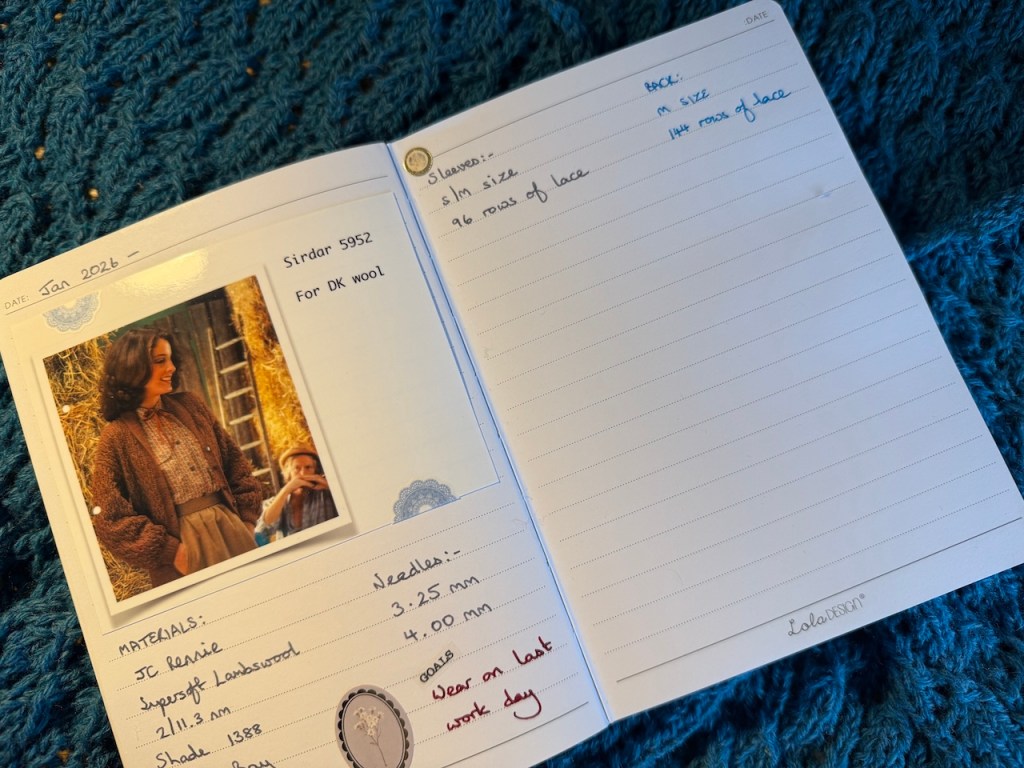 DATE: Jan 2026 -
Sirdar 5952
For DK wool
MATERIALS:
JC Rennie
Supersoft Lambswool
2/11.3 nm
Shade 1388
Needles:-
3.25 mm
4.00 mm
GOALS
Wear on last
work day
:DATE
Sleeves:-
s/m size
96 rows of lace
BACK:
m size
144 rows of lace
Lola DESIGN